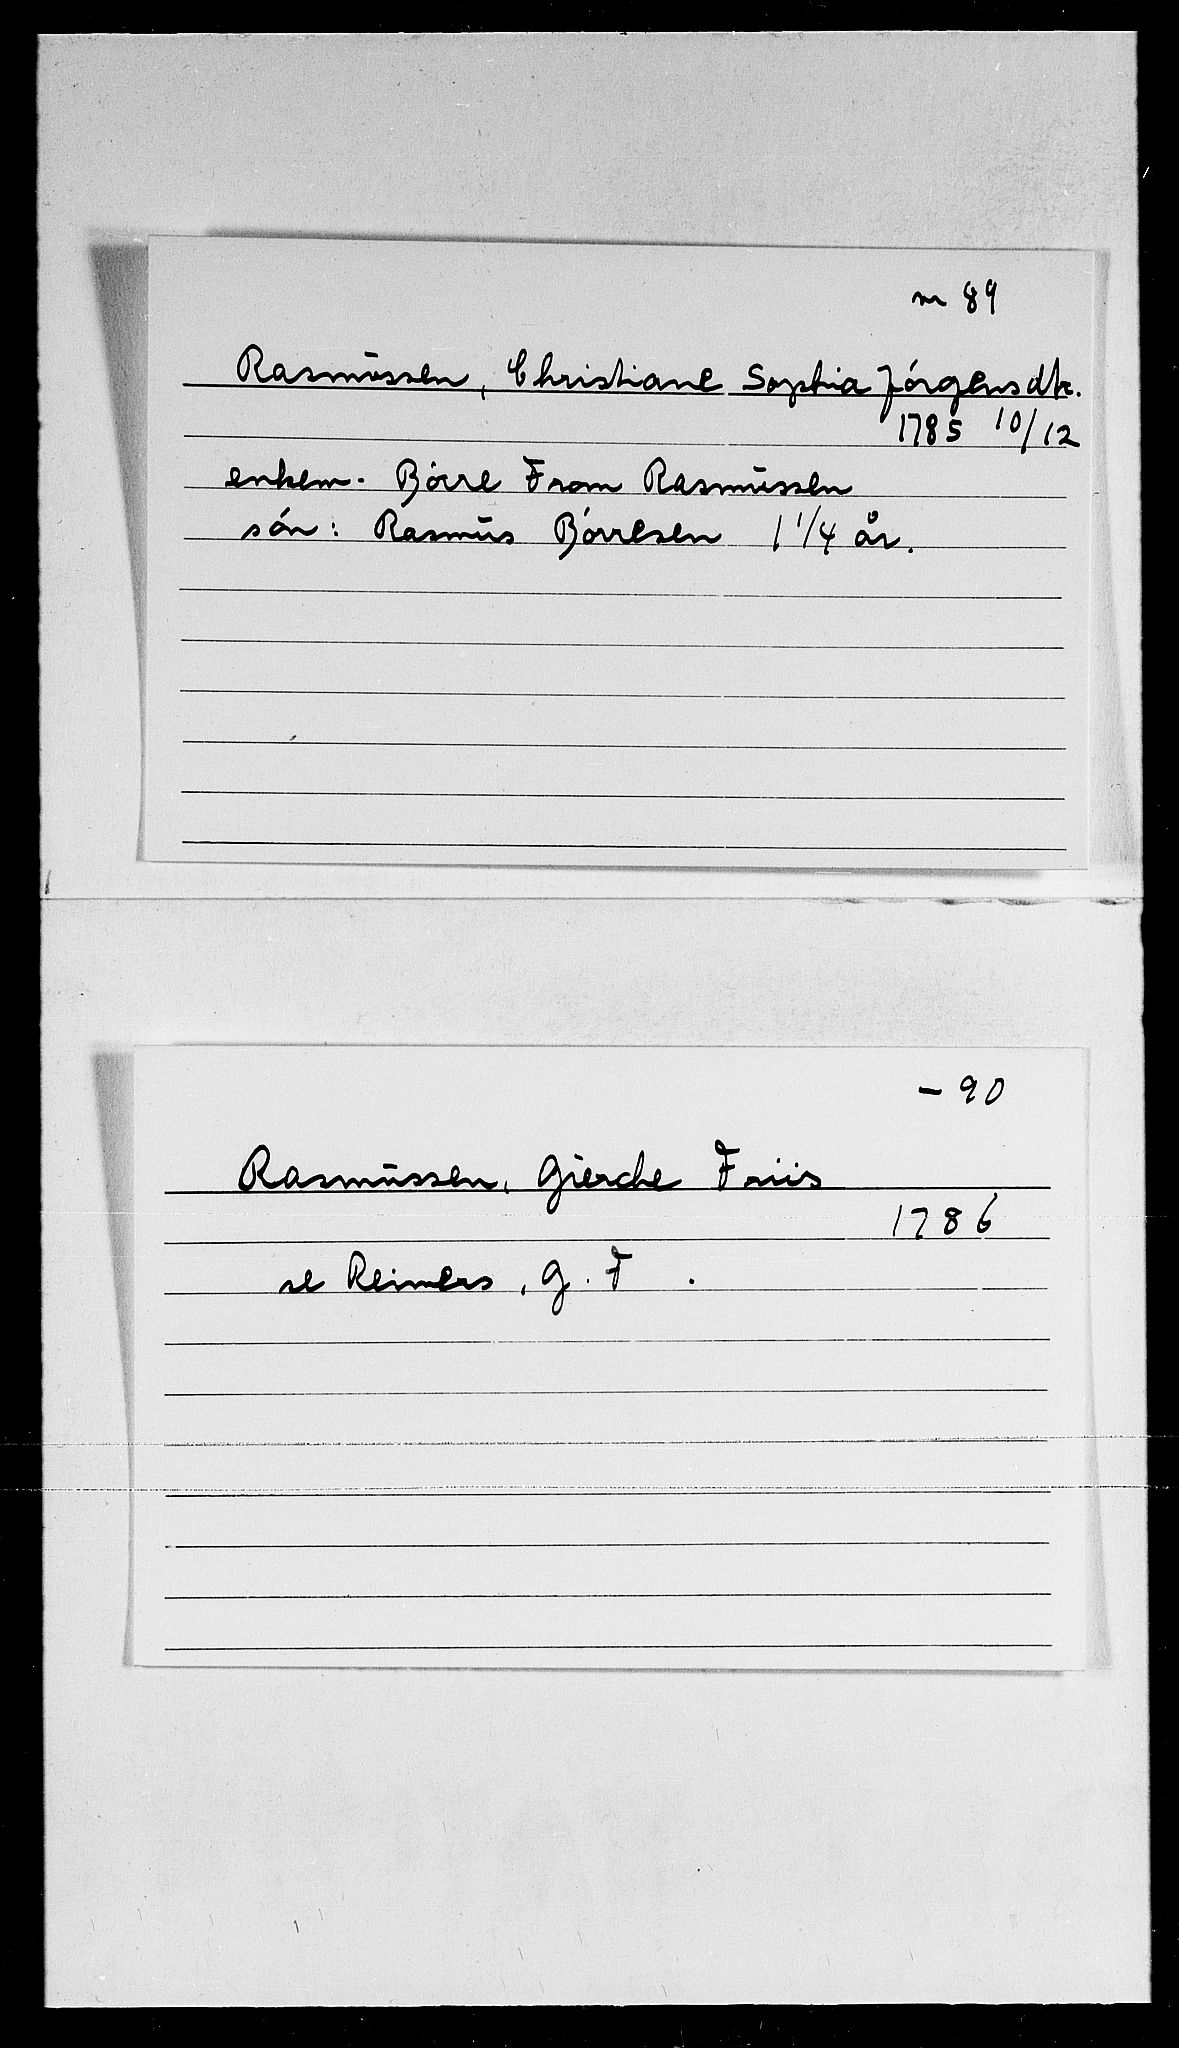 nr 89
Rasmussen, Christiane Sophia Jörgensdtr.
1785 10/12
enkem. Börre From Rasmussen
sön: Rasmus Börresen 1 1/4 år.
- 90
Rasmussen, Gierche Friis
1786
se Reimers, G. F.